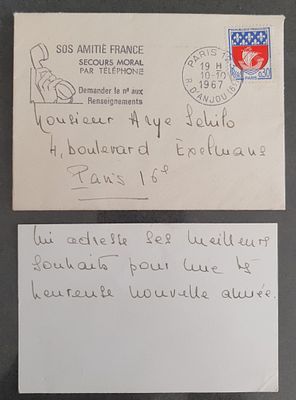 SOS AMITIÉ FRANCE
SECOURS MORAL
PAR TÉLÉPHONE
Demander le nº aux
Renseignements
PARIS
19 H
10-10
1967
R. D'ANJOU (8e)
0,30
Monsieur Arye Schilo
4, Boulevard Exelmans
Paris 16e
lui adresse ses meilleurs
souhaits pour une ts
heureuse nouvelle année.